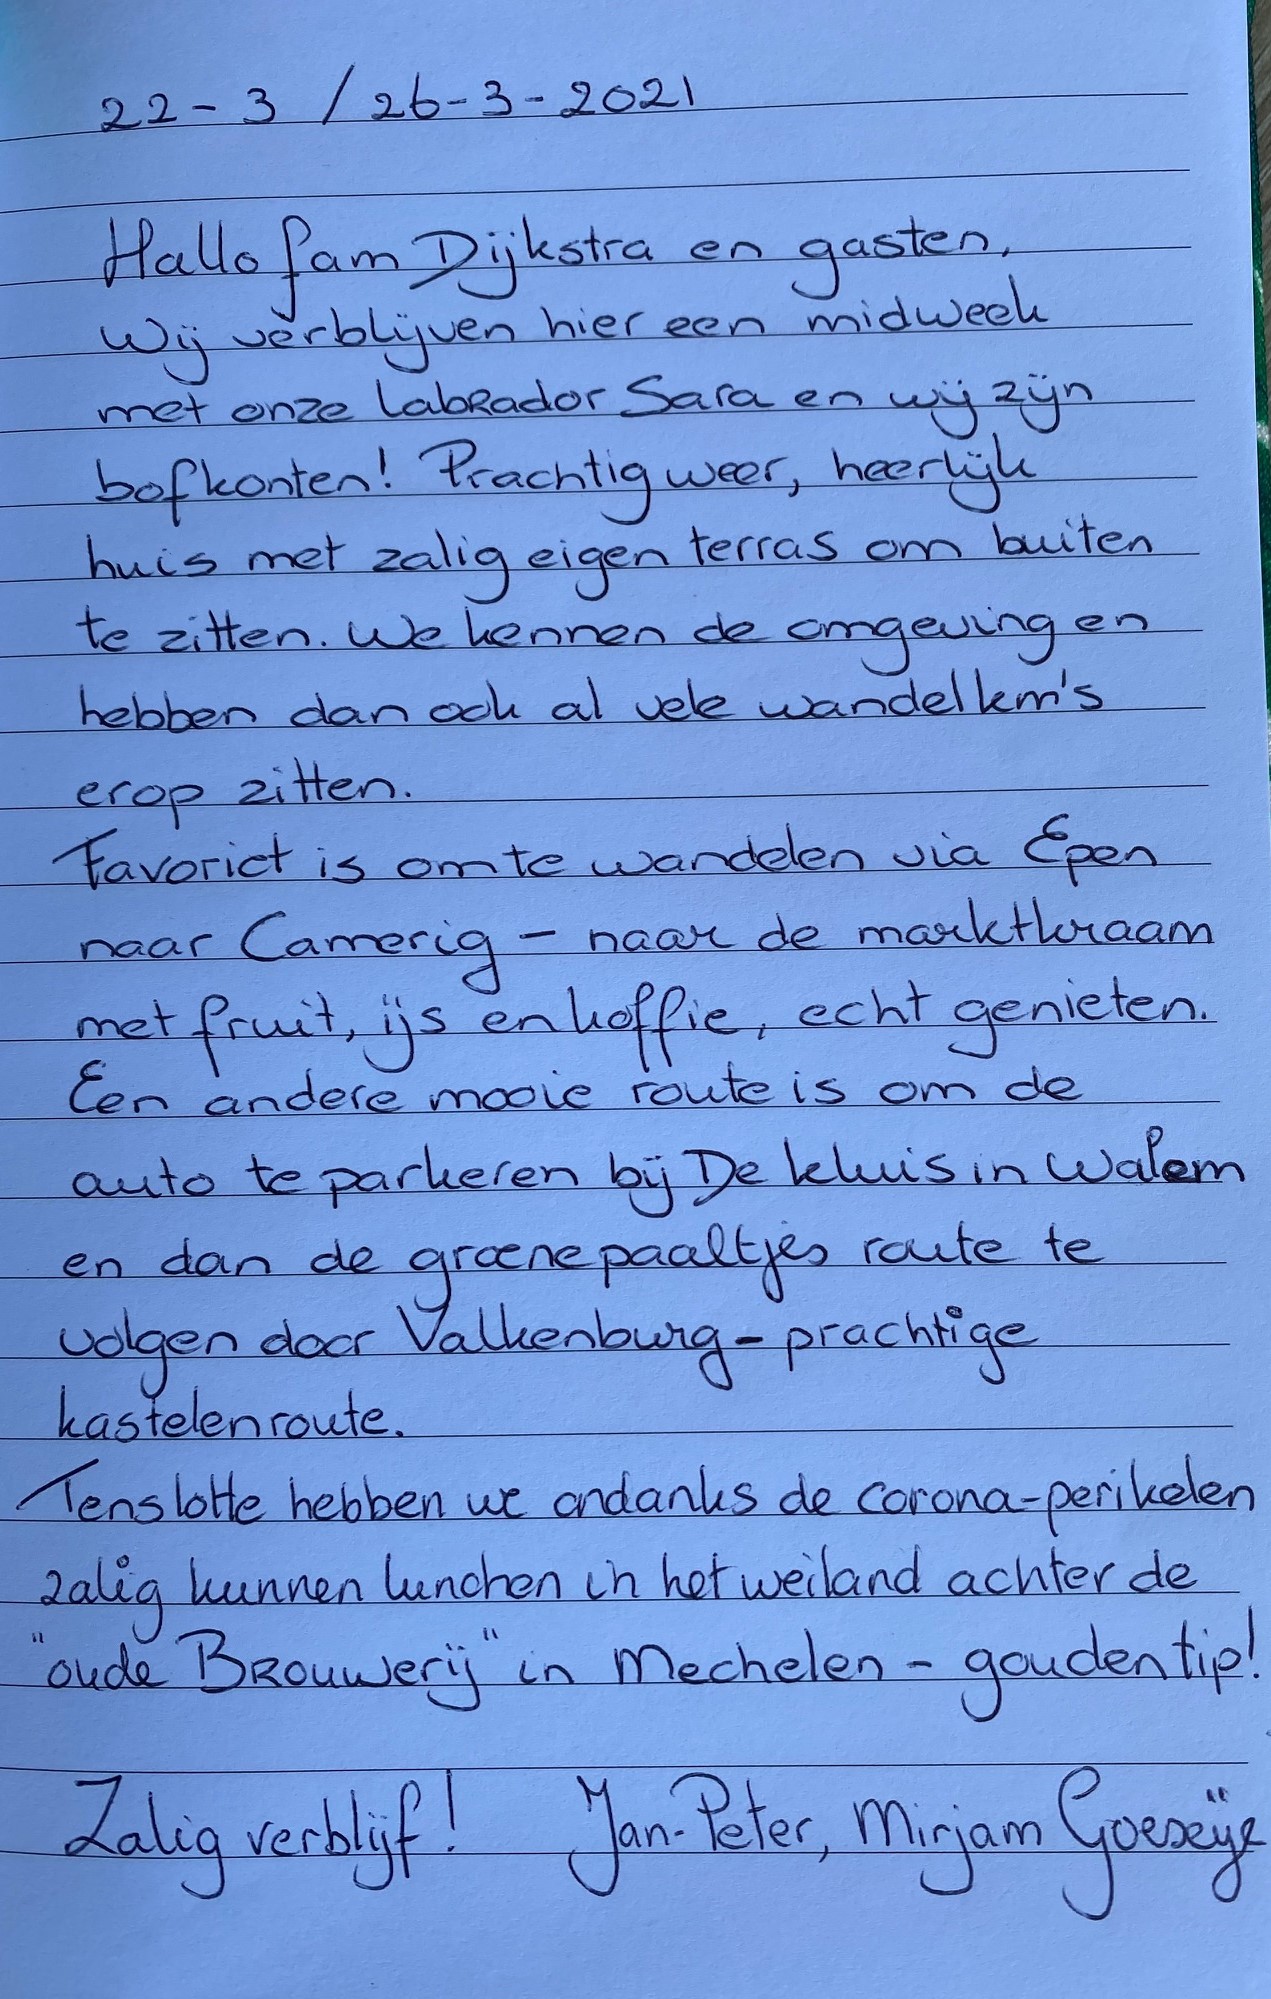 22-3 / 26-3-2021
Hallo fam Dijkstra en gasten,
Wij verblijven hier een midweek
met onze labrador Sara en wij zijn
bofkonten! Prachtig weer, heerlijk
huis met zalig eigen terras om buiten
te zitten. We kennen de omgeving en
hebben dan ook al vele wandelkm's
erop zitten.
Favoriet is om te wandelen via Epen
naar Camerig - naar de marktkraam
met fruit, ijs en koffie, echt genieten.
Een andere mooie route is om de
auto te parkeren bij De kluis in Walem
en dan de groene paaltjes route te
volgen door Valkenburg - prachtige
kastelenroute.
Tenslotte hebben we ondanks de corona-perikelen
zalig kunnen lunchen in het weiland achter de
"oude Brouwerij" in Mechelen - gouden tip!
Zalig verblijf! Jan-Peter, Mirjam